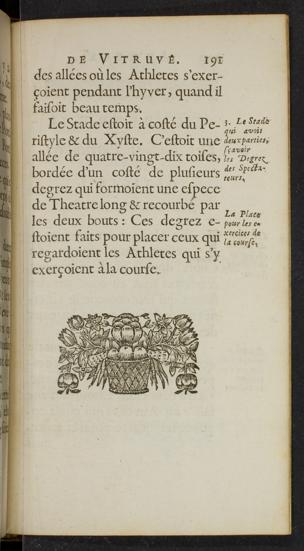 DE VITRUVE. 191
des allées où les Athletes s'exer-
çoient pendant l'hyver, quand il
faisoit beau temps.
Le Stade estoit à costé du Pe-
ristyle & du Xyste. C'estoit une
allée de quatre-vingt-dix toises,
bordée d'un costé de plusieurs
degrez qui formoient une espece
de Theatre long & recourbé par
les deux bouts : Ces degrez e-
stoient faits pour placer ceux qui
regardoient les Athletes qui s'y
exerçoient à la course.
3. Le Stade
qui avoit
deux parties,
sçavoir
les Degrez
des Specta-
teurs,
La Place
pour les e-
xercices de
la course,